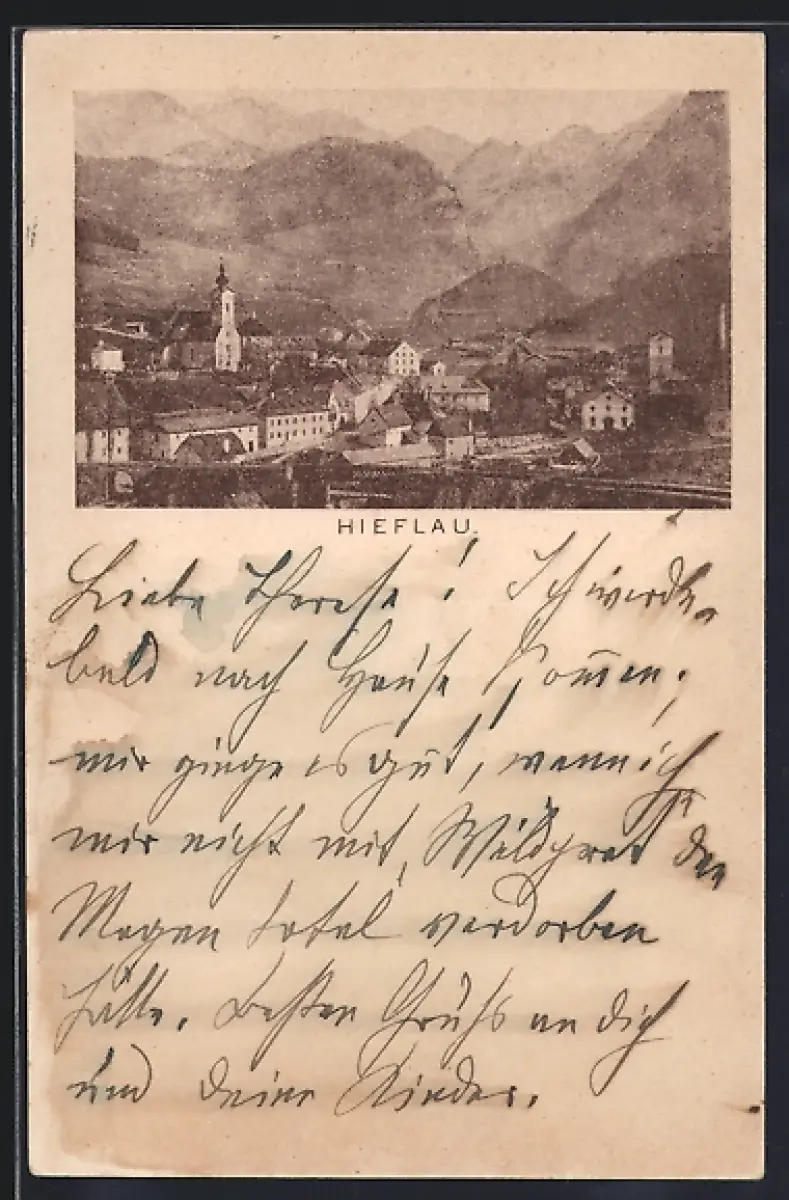 HIEFLAU.
Liebe Therese! Ich werde
bald nach Hause kom̄en;
mir ginge es gut, wenn ich
mir nicht mit den
Magen total verdorben
hätte. Besten Gruß an dich
und deine Kinder.